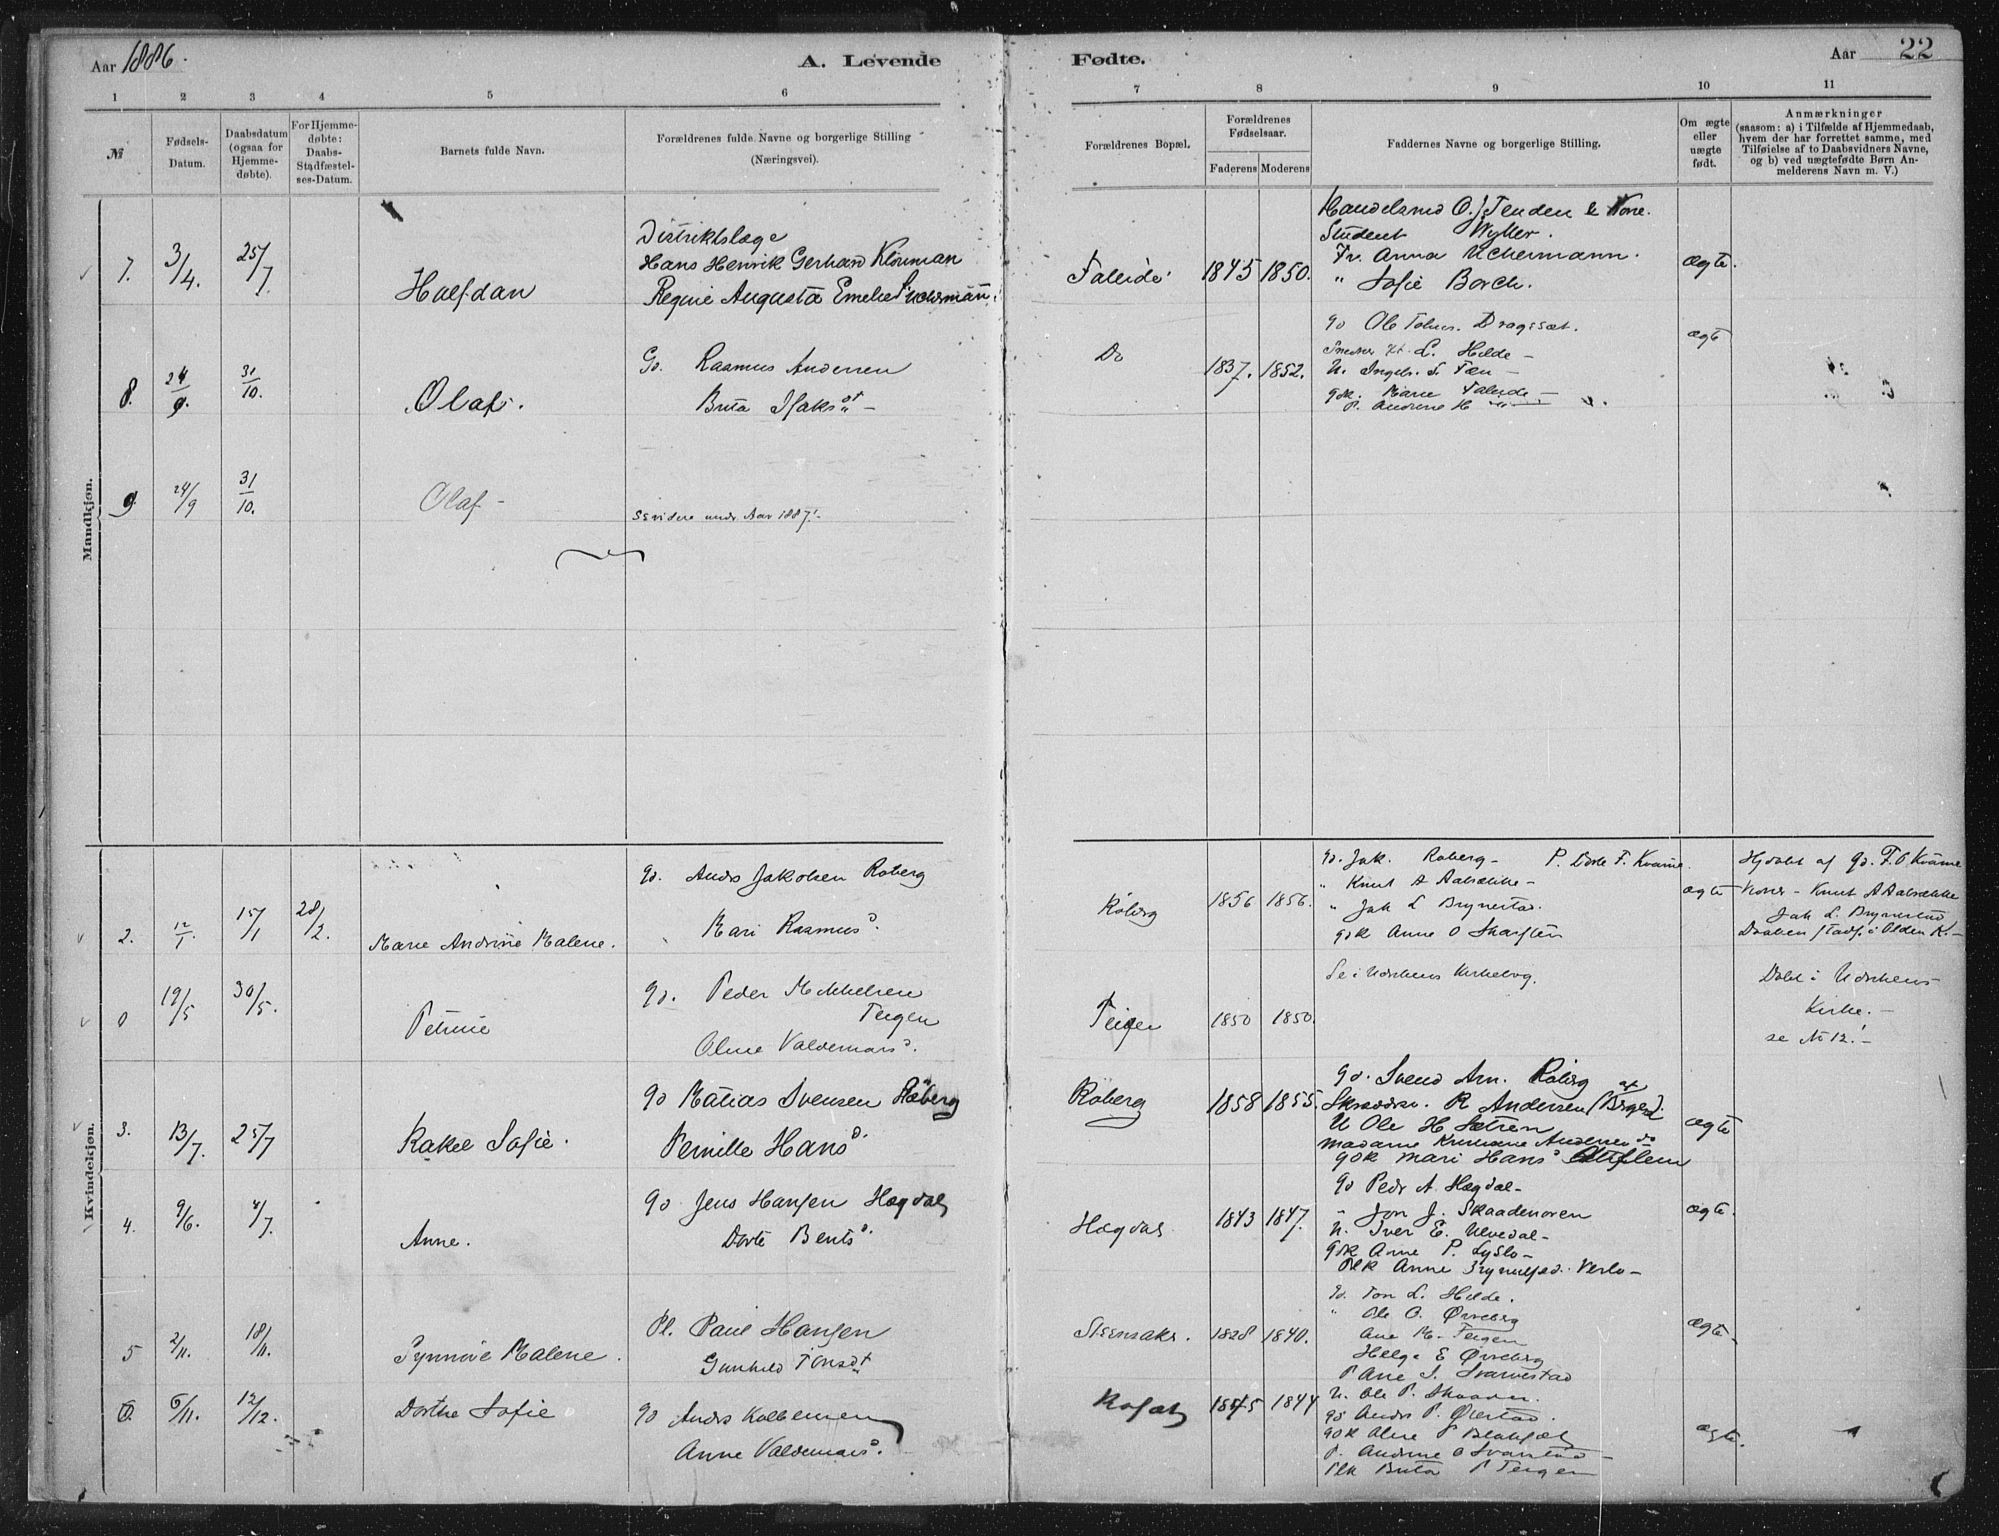 Aar 1886.
A. Levende
Fødte.
Aar 22
1 2 3 4 5 6 7 8 9 10 11
№
Fødsels-
Datum.
Daabsdatum
(ogsaa for
Hjemme-
døbte).
For Hjemme-
døbte:
Daabs-
Stadfæstel-
ses-Datum.
Barnets fulde Navn.
Forældrenes fulde Navne og borgerlige Stilling
(Næringsvei).
Forældrenes Bopæl.
Forældrenes
Fødselsaar.
Faderens Moderens
Faddernes Navne og borgerlige Stilling.
Om ægte
eller
uægte
født.
Anmærkninger
(saasom: a) i Tilfælde af Hjemmedaab,
hvem der har forrettet samme, med
Tilføielse af to Daabsvidners Navne,
og b) ved uægtefødte Børn An-
melderens Navn m. V.)
Mandkjøn.
7. 3/4. 25/7
Halfdan
Distriktslæge
Hans Henrik Gerhard
Regine Augusta Emelie
Faleide 1845 1850.
Handelsmd O. J. Tenden & Kone.
Student Wyller.
Fr. Anna Uchermann.
" Sofie Borch.
ægte.
8. 24/9. 31/10.
Olaf.
Go. Rasmus Andersen
Do 1837. 1852.
L. Hilde -
Marie Faleide -
ægte
9. 24/9 31/10.
Olaf -
se videre under Aar 1887!-
Kvindekjøn.
2. 12/1. 15/1 28/2.
Marie Andrine Malene.
Go. Anders Jakobsen Roberg
Mari Rasmusd.
Roberg 1856 1856.
Go. Jak. Roberg - P. Dorte F. Kvame.
" Knut A Aabrekke -
" Jak L Brynestad.
gok Anne O
ægte
Hjdøbt af go. F. O Kvame
Vidner - Knut A Aabrekke
Jak L. Brynestad
Daaben stadf. i Olden K. -
0 19/5 30/5.
Petrine
Go. Peder Mikkelsen
Teigen
Oline Valdemarsd.
Teigen 1850 1850.
Se i Udvikens Kirkebog.
Døbt i Udvikens
Kirke. -
se № 12!-
3. 13/7. 25/7
Rakel Sofie.
Go Matias Svensen Roberg
Pernille Hansd.
Roberg 1858 1855.
Go. Svend Am. Roberg
R Andersen (Bergen).
U Ole H Sætren
Madame Kristiane Andersen do
gok Mari Hansd
ægte
4. 9/6. 4/7.
Anne.
Go Jens Hansen Hægdal
Dorte Bentsd.
Hægdal 1843 1847.
Go Peder A. Hægdal -
" Jon J. Skaadenoren
U. Iver E. Ulvedal -
Gok Anne P. Lyslo -
Plk Anne Brynulfsd. Verlo -
ægte.
5 2/11. 18/11.
Synnøve Malene.
Pl. Paul Hansen
Gunhild Jonsdt
1828 1840.
Go. Jon L. Hilde.
" Ole O. Ørreberg
Ane M. Teigen
Helge E Ørreberg
P Ane S. Svarvestad
ægte -
6. 6/11. 12/12.
Dorthe Sofie
Go Anders Kolbensen
Anne Valdemarsd.
1845 1844
U. Ole P. Skaaden.
Go Anders P.
gok Oline P
P. Andrine O
Plk Brita P Teigen
ægte.